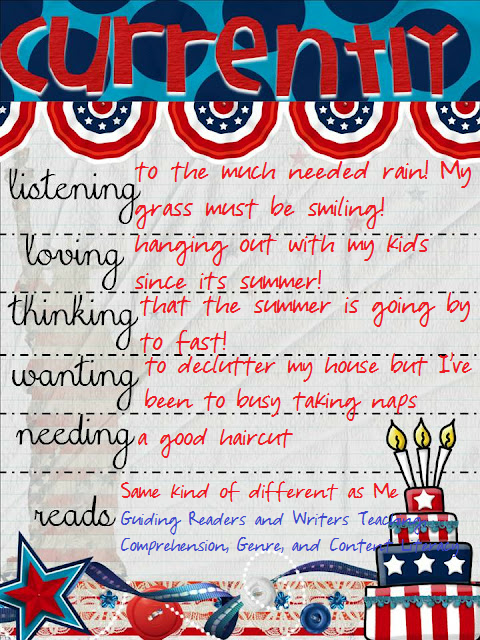 currently
listening to the much needed rain! My
grass must be smiling!
loving hanging out with my kids
since its summer!
thinking that the summer is going by
to fast!
wanting to declutter my house but I've
been to busy taking naps
needing a good haircut
reads Same kind of different as Me
Guiding Readers and Writers Teaching
Comprehension, Genre, and Content Literacy